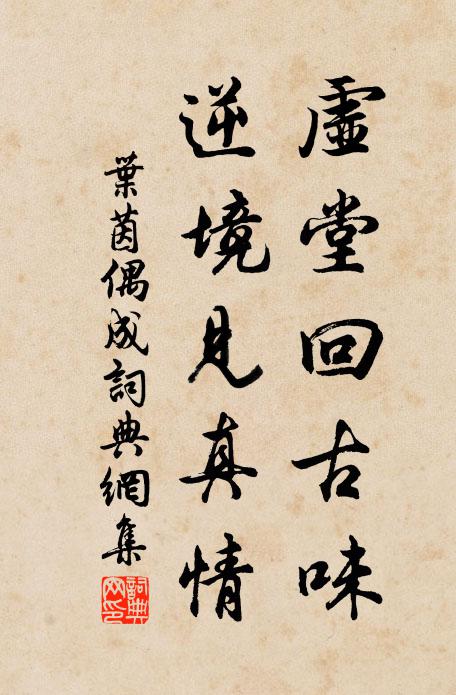 虛堂回古味
逆境見真情
葉茵偶成詞典網集
詞典網印